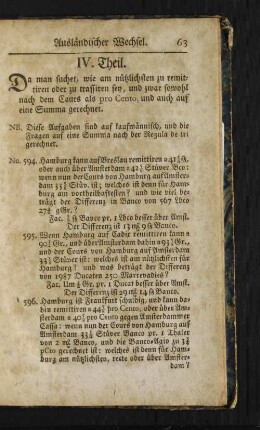 Ausländischer Wechsel. 63
IV. Theil.
Da man suchet, wie am nützlichsten zu remit-
tiren oder zu trassiren sey, und zwar sowohl
nach dem Cours als pro Cento, und auch auf
eine Summa gerechnet.
NB. Diese Aufgaben sind auf kaufmännisch, und die
Fragen auf eine Summa nach der Regula de tri
gerechnet.
No. 594. Hamburg kann auf Breslau remittiren
oder auch über Amsterdam Stüver Bco:
wenn nun der Cours von Hamburg auf Amster-
dam 33 Stüv. ist; welches ist denn für Ham-
burg am vortheilhaftesten? und wie viel be-
trägt der Differenz in Banco von 567 Lbco
27 gGr.?
Fac. ß Banco pr. 1 Lbco besser über Amst.
Der Differenz ist 13 ß Banco.
595. Wenn Hamburg auf Cadix remittiren kann
90 Gr., und über Amsterdam dahin Gr.,
und der Cours von Hamburg auf Amsterdam
33 Stüver ist: welches ist am nützlichsten für
Hamburg? und was beträgt der Differenz
von 1987 Ducaten 250 Marrevadies?
Fac. Um Gr. pr. 1 Ducat besser über Amst.
Der Differenz ist 29 14 ß Banco.
596. Hamburg ist Frankfurt schuldig, und kann da-
hin remittiren pro Cento, oder über Am-
sterdam pro Cento gegen Amsterdammer
Cassa: wenn nun der Cours von Hamburg auf
Amsterdam 33 Stüver Banco pr. 1 Thaler
von 2 Banco, und die Banco Agio zu
pCto gerechnet ist: welches ist denn für Ham-
burg am nützlichsten, recte oder über Amster-
dam?